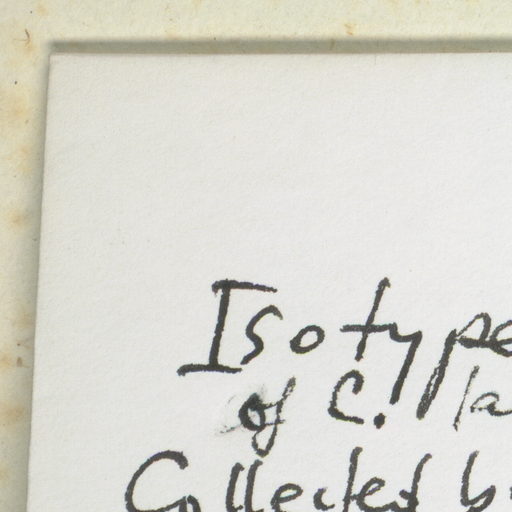 Isotype
of C. la
Collected b